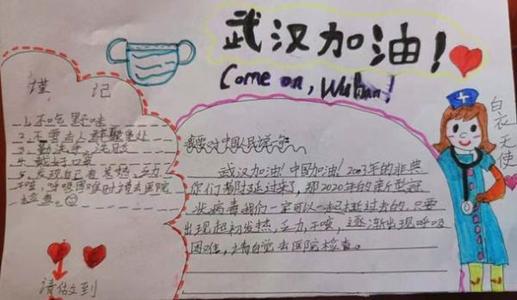 武汉加油！
Come on, Wuhan!
谨记
1.不吃野味
2.不要去人群聚集处
3.勤洗手,
4.戴好口罩
5.发现自己有发热,乏力
干咳,呼吸困难时请去医院
检查。
请做到
武汉加油！中国加油！2003年的非典
你们都挺过来了,那2020年的新型冠
状病毒我们一定可以一起挺过去的,只要
出现起初发热,乏力,干咳,逐渐出现呼吸
困难,请自觉去医院检查。
白衣天使